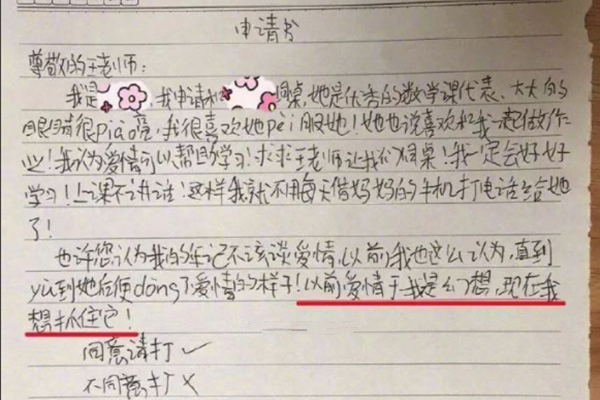 申请书
尊敬的王老师：
我是，我申请和同桌，她是优秀的数学课代表、大大的
眼睛很piào亮，我很喜欢她pèi服她！她也说喜欢和我一起做作
业！我认为爱情可以帮助学习！求求王老师让我们同桌！我一定会好好
学习！上课不讲话！这样我就不用每天借妈妈的手机打电话给她
了！
也许您认为我的年记不该谈爱情，以前我也这么认为，直到
yù到她后便dǒng了爱情的样子！以前爱情于我是幻想，现在我
想抓住它！
同意请打✓
不同意打✗